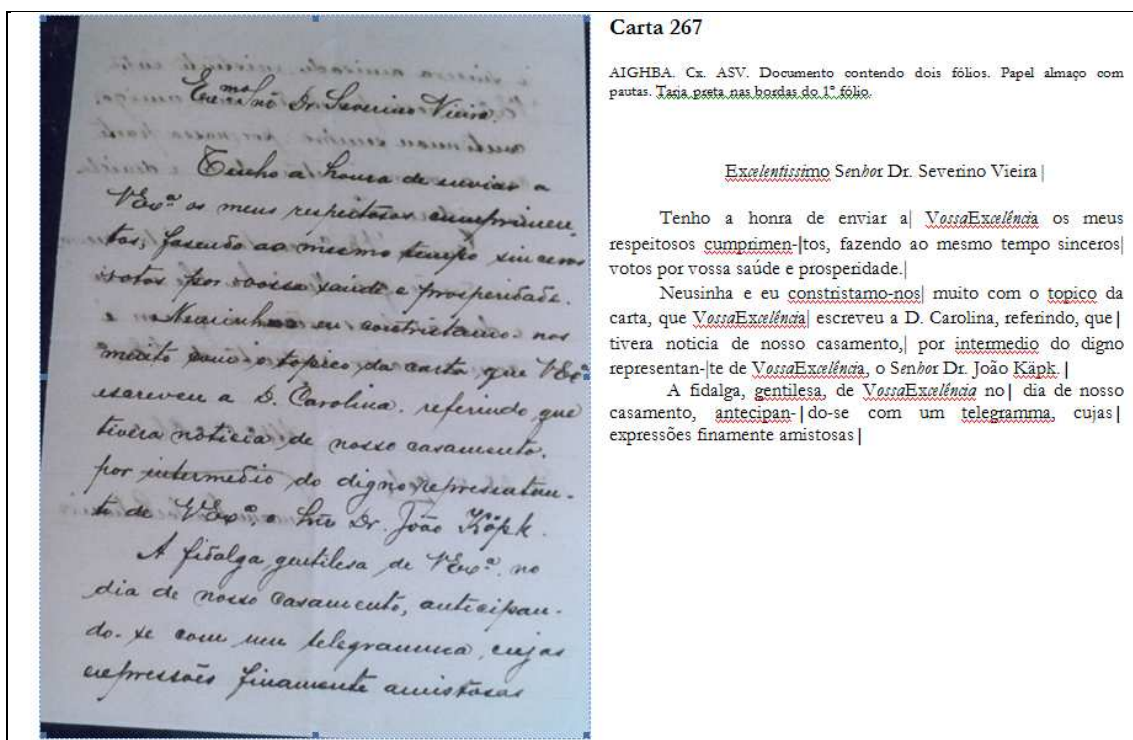 Exc.mo Snr. Dr. Severino Vieira.
Tenho a honra de enviar a
VExcª os meus respeitosos cumprimen-
tos, fasendo ao mesmo tempo sinceros
votos por vossa saúde e prosperidade.
Neusinha e eu constristamo-nos
muito com o topico da carta, que VExcª
escreveu a D. Carolina, referindo, que
tivera noticia de nosso casamento,
por intermedio do digno representan-
te de VExcª o Snr Dr. João Köpk.
A fidalga, gentilesa, de VExcª, no
dia de nosso casamento, anticipan-
do-se com um telegramma, cujas
expressões finamente amistosas
Carta 267
AIGHBA. Cx. ASV. Documento contendo dois fólios. Papel almaço com
pautas. Tarja preta nas bordas do 1º fólio.
Excelentissimo Senhor Dr. Severino Vieira|
Tenho a honra de enviar a| VossaExcelência os meus
respeitosos cumprimen-|tos, fazendo ao mesmo tempo sinceros|
votos por vossa saúde e prosperidade.|
Neusinha e eu constristamo-nos| muito com o topico da
carta, que VossaExcelência| escreveu a D. Carolina, referindo, que|
tivera noticia de nosso casamento,| por intermedio do digno
representan-|te de VossaExcelência, o Senhor Dr. João Käpk. |
A fidalga, gentilesa, de VossaExcelência no| dia de nosso
casamento, antecipan- |do-se com um telegramma, cujas|
expressões finamente amistosas|